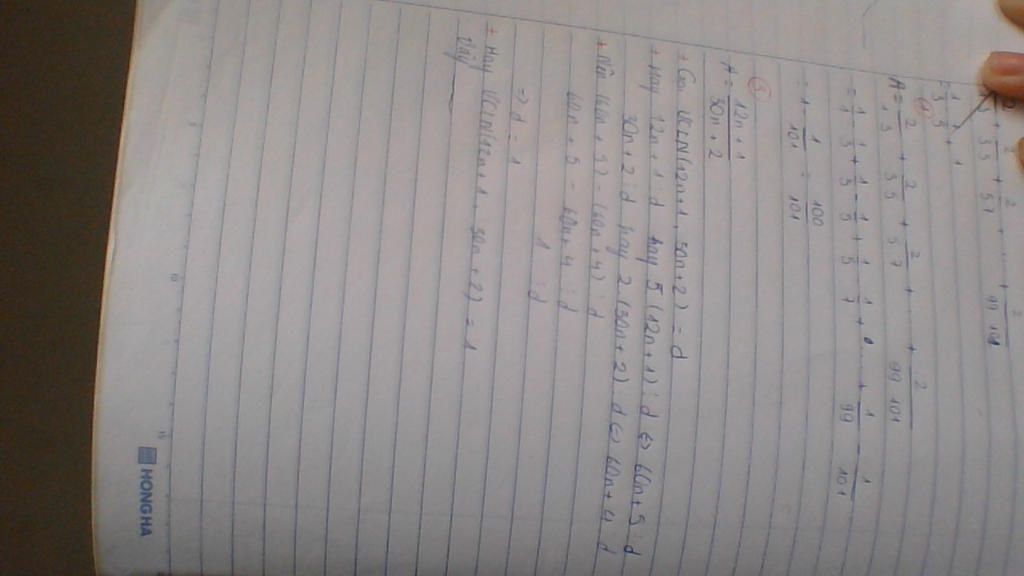 2 + 2/3.5 + 2/5.7 + ... + 2/99.101
1/3.5 + 1
A = 2/1.3 + 2/3.5 + 2/5.7 + ... + 2/99.101
= 1/1 - 1/3 + 1/3 - 1/5 + 1/5 - 1/7 + ... + 1/99 - 1/101
= 1 - 1/101 = 100/101
⑤
A = 12n+1/30n+2
+ Gọi ƯCLN(12n+1, 30n+2) = d
+ Hay 12n+1 ⋮ d hay 5(12n+1) ⋮ d ⇔ 60n+5 ⋮ d
30n+2 ⋮ d hay 2(30n+2) ⋮ d ⇔ 60n+4 ⋮ d
+ Nên (60n+5) - (60n+4) ⋮ d
60n+5 - 60n+4 ⋮ d
1 ⋮ d
⇒ d = 1
+ Hay ƯCLN(12n+1, 30n+2) = 1
Vậy
HONG HA